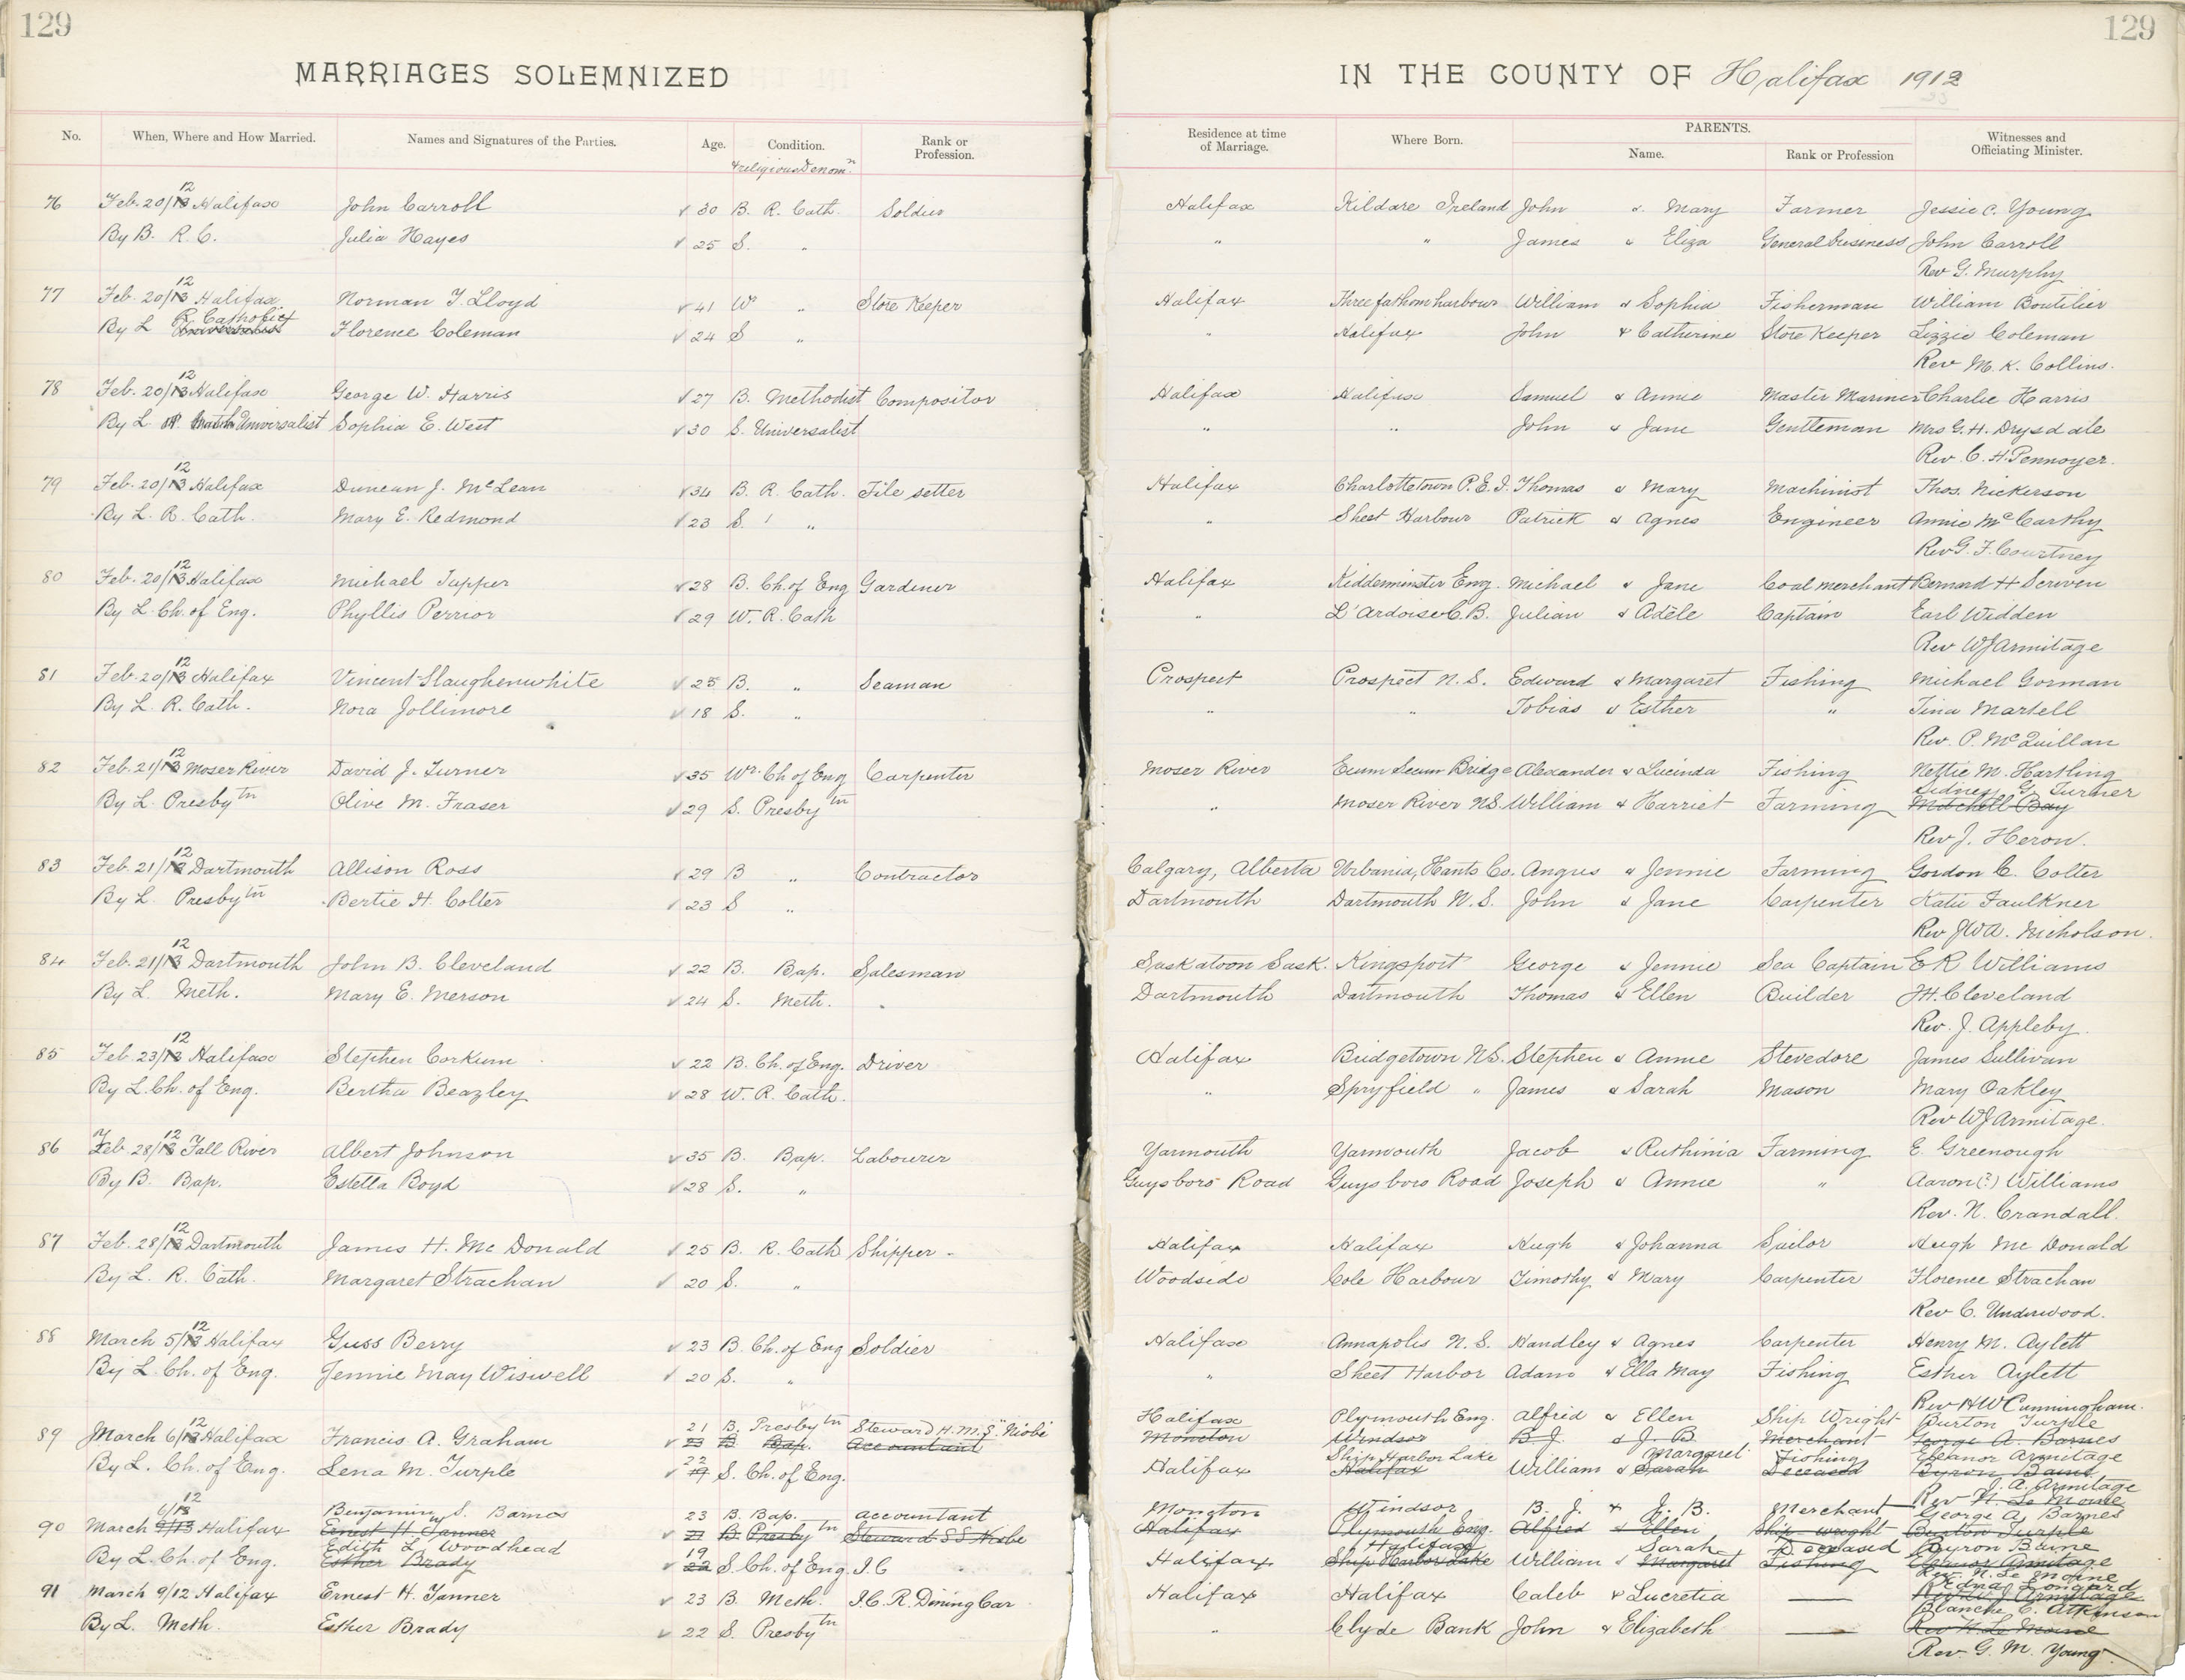 129
129
MARRIAGES SOLEMNIZED IN THE COUNTY OF Halifax 1912
No. When, Where and How Married. Names and Signatures of the Parties. Age. Condition. & religious Denom.n Rank or Profession. Residence at time of Marriage. Where Born. PARENTS. Name. Rank or Profession Witnesses and Officiating Minister.
76 Feb. 20/12 Halifax John Carroll 30 B. R. Cath. Soldier Halifax Kildare Ireland John & Mary Farmer Jessie C. Young
By B. R. C. Julia Hayes 25 S. " " " James & Eliza General business John Carroll
Rev G. Murphy
77 Feb. 20/12 Halifax Norman J. Lloyd 41 Wr " Store Keeper Halifax Three fathom harbour William & Sophia Fisherman William Boutilier
By L R. Catholic Universalist Florence Coleman 24 S " " Halifax John & Catherine Store Keeper Lizzie Coleman
Rev M. K. Collins.
78 Feb. 20/12 Halifax George W. Harris 27 B. Methodist Compositor Halifax Halifax Samuel & Annie Master Mariner Charlie Harris
By L Universalist Sophia E. West 30 S. Universalist " " John & Jane Gentleman Mrs G. H. Drysdale
Rev. C. H. Pennoyer.
79 Feb. 20/12 Halifax Duncan J. McLean 34 B. R. Cath. Tile setter Halifax Charlottetown P.E.I. Thomas & Mary Machinist Thos. Nickerson
By L. R. Cath. Mary E. Redmond 23 S. " " Sheet Harbour Patrick & Agnes Engineer Annie McCarthy
Rev G. F. Courtney
80 Feb. 20/12 Halifax Michael Tupper 28 B. Ch. of Eng Gardener Halifax Kidderminster Eng. Michael & Jane Coal merchant Bernard H Scriven
By L. Ch. of Eng. Phyllis Perrior 29 W. R. Cath " L'Ardoise C.B. Julian & Adèle Captain Earl Widden
Rev W J Armitage
81 Feb. 20/12 Halifax Vincent Slaughenwhite 25 B. " Seaman Prospect Prospect N.S. Edward & Margaret Fishing Michael Gorman
By L. R. Cath. Nora Jollimore 18 S. " " " Tobias & Esther " Tina Martell
Rev. P. McQuillan
82 Feb. 21/12 Moser River David J. Turner 35 Wr. Ch of Eng Carpenter Moser River Ecum Secum Bridge Alexander & Lucinda Fishing Nettie M. Hartling
Sidney G. Turner
By L. Presbytn Olive M. Fraser 29 S. Presbytn " Moser River N.S. William & Harriet Farming Mitchell Bay
Rev J. Heron.
83 Feb. 21/12 Dartmouth Allison Ross 29 B " Contractor Calgary, Alberta Urbania, Hants Co. Angus & Jennie Farming Gordon C. Colter
By L. Presbytn Bertie H. Colter 23 S " Dartmouth Dartmouth N.S. John & Jane Carpenter Katie Faulkner
Rev J W A. Nicholson.
84 Feb. 21/12 Dartmouth John B. Cleveland 22 B. Bap. Salesman Saskatoon Sask. Kingsport George & Jennie Sea Captain E R Williams
By L. Meth. Mary E. Merson 24 S. Meth. Dartmouth Dartmouth Thomas & Ellen Builder J H. Cleveland
Rev. J. Appleby.
85 Feb. 23/12 Halifax Stephen Corkum 22 B. Ch. of Eng. Driver Halifax Bridgetown N.S. Stephen & Annie Stevedore James Sullivan
By L. Ch. of Eng. Bertha Beazley 28 W. R. Cath. " Spryfield " James & Sarah Mason Mary Oakley
Rev W J Armitage.
86 Feb. 28/12 Fall River Albert Johnson 35 B. Bap. Labourer Yarmouth Yarmouth Jacob & Ruthinia Farming E. Greenough
By B. Bap. Estella Boyd 28 S. " Guysboro Road Guysboro Road Joseph & Annie " Aaron (?) Williams
Rev. N. Crandall.
87 Feb. 28/12 Dartmouth James H. McDonald 25 B. R. Cath Shipper Halifax Halifax Hugh & Johanna Sailor Hugh McDonald
By L. R. Cath. Margaret Strachan 20 S. " Woodside Cole Harbour Timothy & Mary Carpenter Florence Strachan
Rev C. Underwood.
88 March 5/12 Halifax Guss Berry 23 B. Ch. of Eng Soldier Halifax Annapolis N.S. Handley & Agnes Carpenter Henry M. Aylett
By L. Ch. of Eng. Jennie May Wiswell 20 S. " " Sheet Harbor Adam & Ella May Fishing Esther Aylett
Rev H W Cunningham.
21 B. Presbytn Steward H.M.S. "Niobe" Halifax Plymouth Eng. Alfred & Ellen Ship Wright Burton Turple
89 March 6/12 Halifax Francis A. Graham 23 B Bap. Accountant Moncton Windsor B. J. & J. B. Merchant George A. Barnes
22 Ship Harbor Lake Margaret Fishing Eleanor Armitage
By L. Ch. of Eng. Lena M. Turple 19 S. Ch. of Eng. Halifax Halifax William & Sarah Deceased Byron Baine
Armitage
Rev N. Le Moine
6/12 Benjamin S. Barnes 23 B. Bap. accountant Moncton Windsor B. J. & J. B. Merchant George A. Barnes
90 March 9/13 Halifax Ernest H. Tanner 21 B. Presbytn Steward S S Niobe Halifax Plymouth Eng. Alfred & Ellen Ship wright Burton Turple
Edith L. Woodhead 19 Halifax Sarah Deceased Byron Baine
By L. Ch. of Eng. Esther Brady 22 S. Ch. of Eng. I.C Halifax Ship Harbor Lake William & Margaret Fishing Eleanor Armitage
Rev. N. Le Moine
Edna Longard
91 March 9/12 Halifax Ernest H. Tanner 23 B. Meth. I.C.R. Dining Car Halifax Halifax Caleb & Lucretia Rev W J Armitage
Blanche C. Atkinson
By L. Meth. Esther Brady 22 S. Presbytn " Clyde Bank John & Elizabeth Rev N. Le Moine
Rev. G. M. Young